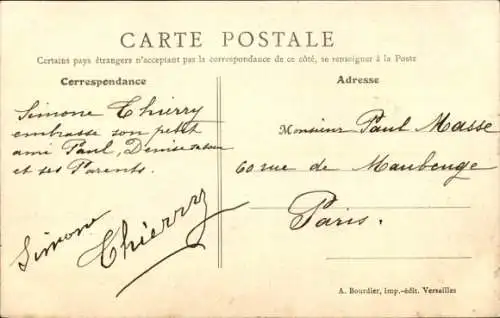 CARTE POSTALE
Certains pays étrangers n'acceptant pas la correspondance de ce côté, se renseigner à la Poste
Correspondance
Simone Thierry
embrasse son petit
ami Paul, Denise
et ses Parents.
Simone
Thierry
Adresse
Monsieur Paul Masse
60 rue de Maubeuge
Paris.
A. Bourdier, imp.-édit. Versailles